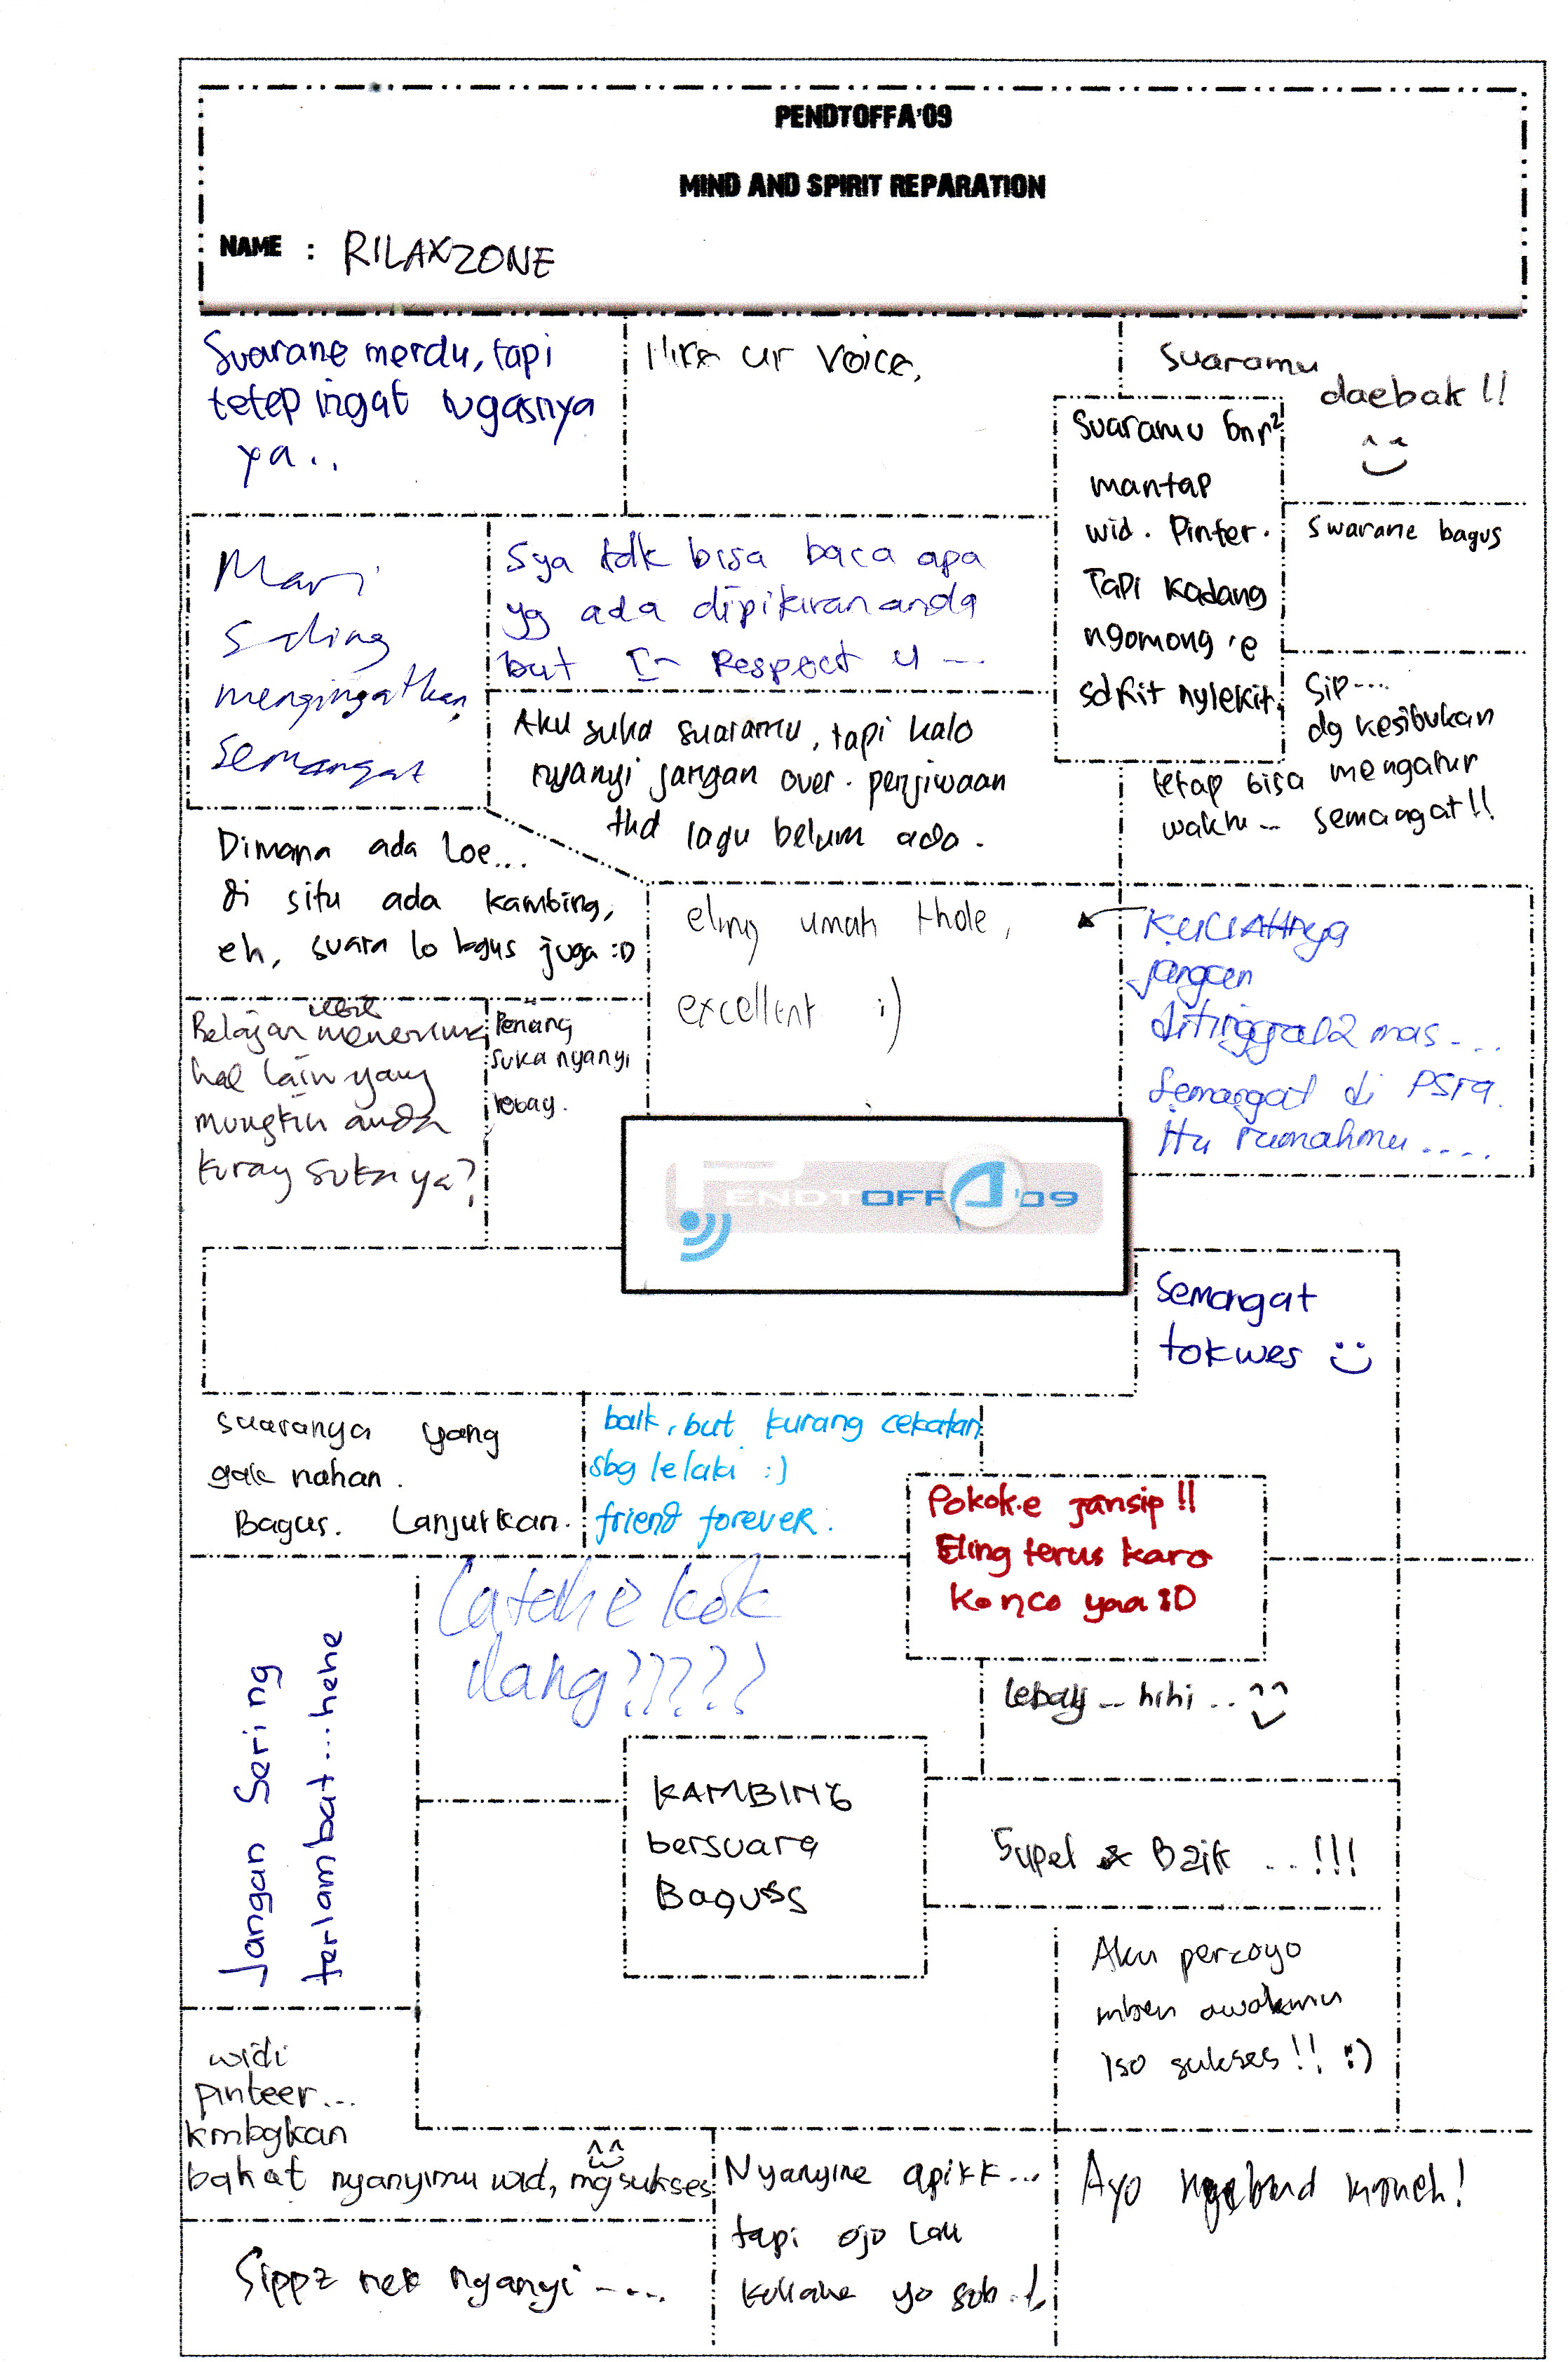 PENDTOFFA'09
MIND AND SPIRIT REPARATION
NAME : RILAXZONE
Suarane merdu, tapi
tetep ingat tugasnya
ya..
I like ur voice,
suaramu
daebak !!
Suaramu bnr²
mantap
wid. Pinter.
Tapi kadang
ngomong'e
sdkit nylekit.
Swarane bagus
Mari
saling
mengingatkan,
semangat
Sya tdk bisa baca apa
yg ada dipikiran anda
but I Respect u ...
Aku suka suaramu, tapi kalo
nyanyi jangan over. penjiwaan
thd lagu belum ada.
Sip....
dg kesibukan
tetap bisa mengatur
waktu... semangat!!
Dimana ada Loe...
di situ ada kambing,
eh, suara lo bagus juga :D
eling umah thole,
excellent :)
KULIAHnya
jangan
ditinggal2 mas....
Semangat di PSTA.
itu rumahmu....
Belajar menerima
hal lain yang
mungkin anda
kurang suka ya?
Penang
suka nyanyi
lebay.
PENDTOFFA'09
Semangat
tokwes
suaranya yang
gak nahan.
Bagus. Lanjutkan.
baik, but kurang cekatan
sbg lelaki :)
friend forever.
Pokok.e jansip!!
Eling terus karo
konco yaa :D
Catane kok
ilang?????
Jangan Sering
terlambat...hehe
lebay... hihi..
KAMBING
bersuara
Baguss
Supel & Baik ...!!!
Aku percoyo
mben awakmu
iso sukses!! :)
widi
pinteer...
kmbgkan
bakat nyanyimu wid, mg sukses
Nyanyine apikk...
tapi ojo lali
kuliahe yo sob..!
Ayo ngeband maneh!
Sippz nek nyanyi ....